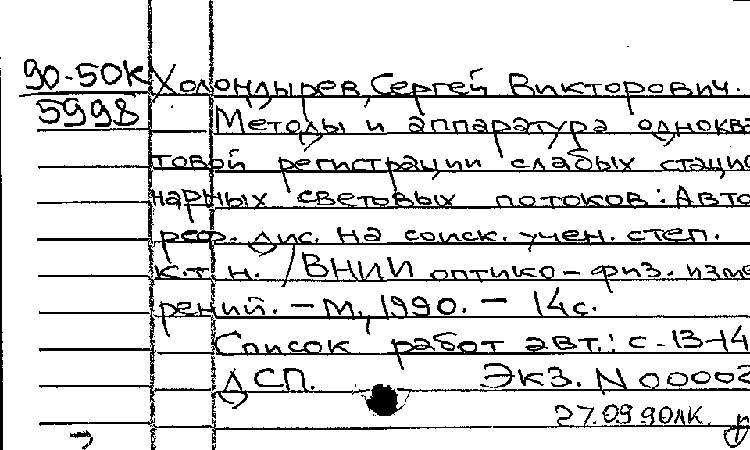 90-50К Холондырев, Сергей Викторович.
5998 Методы и аппаратура однокван
товой регистрации слабых стацио
нарных световых потоков: Авто
реф. дис. на соиск. учен. степ.
к.т.н. / ВНИИ оптико-физ. изме
рений. - М., 1990. - 14с.
Список работ авт.: с.13-14
ДСП. Экз. N 00002
27.09.90лк.